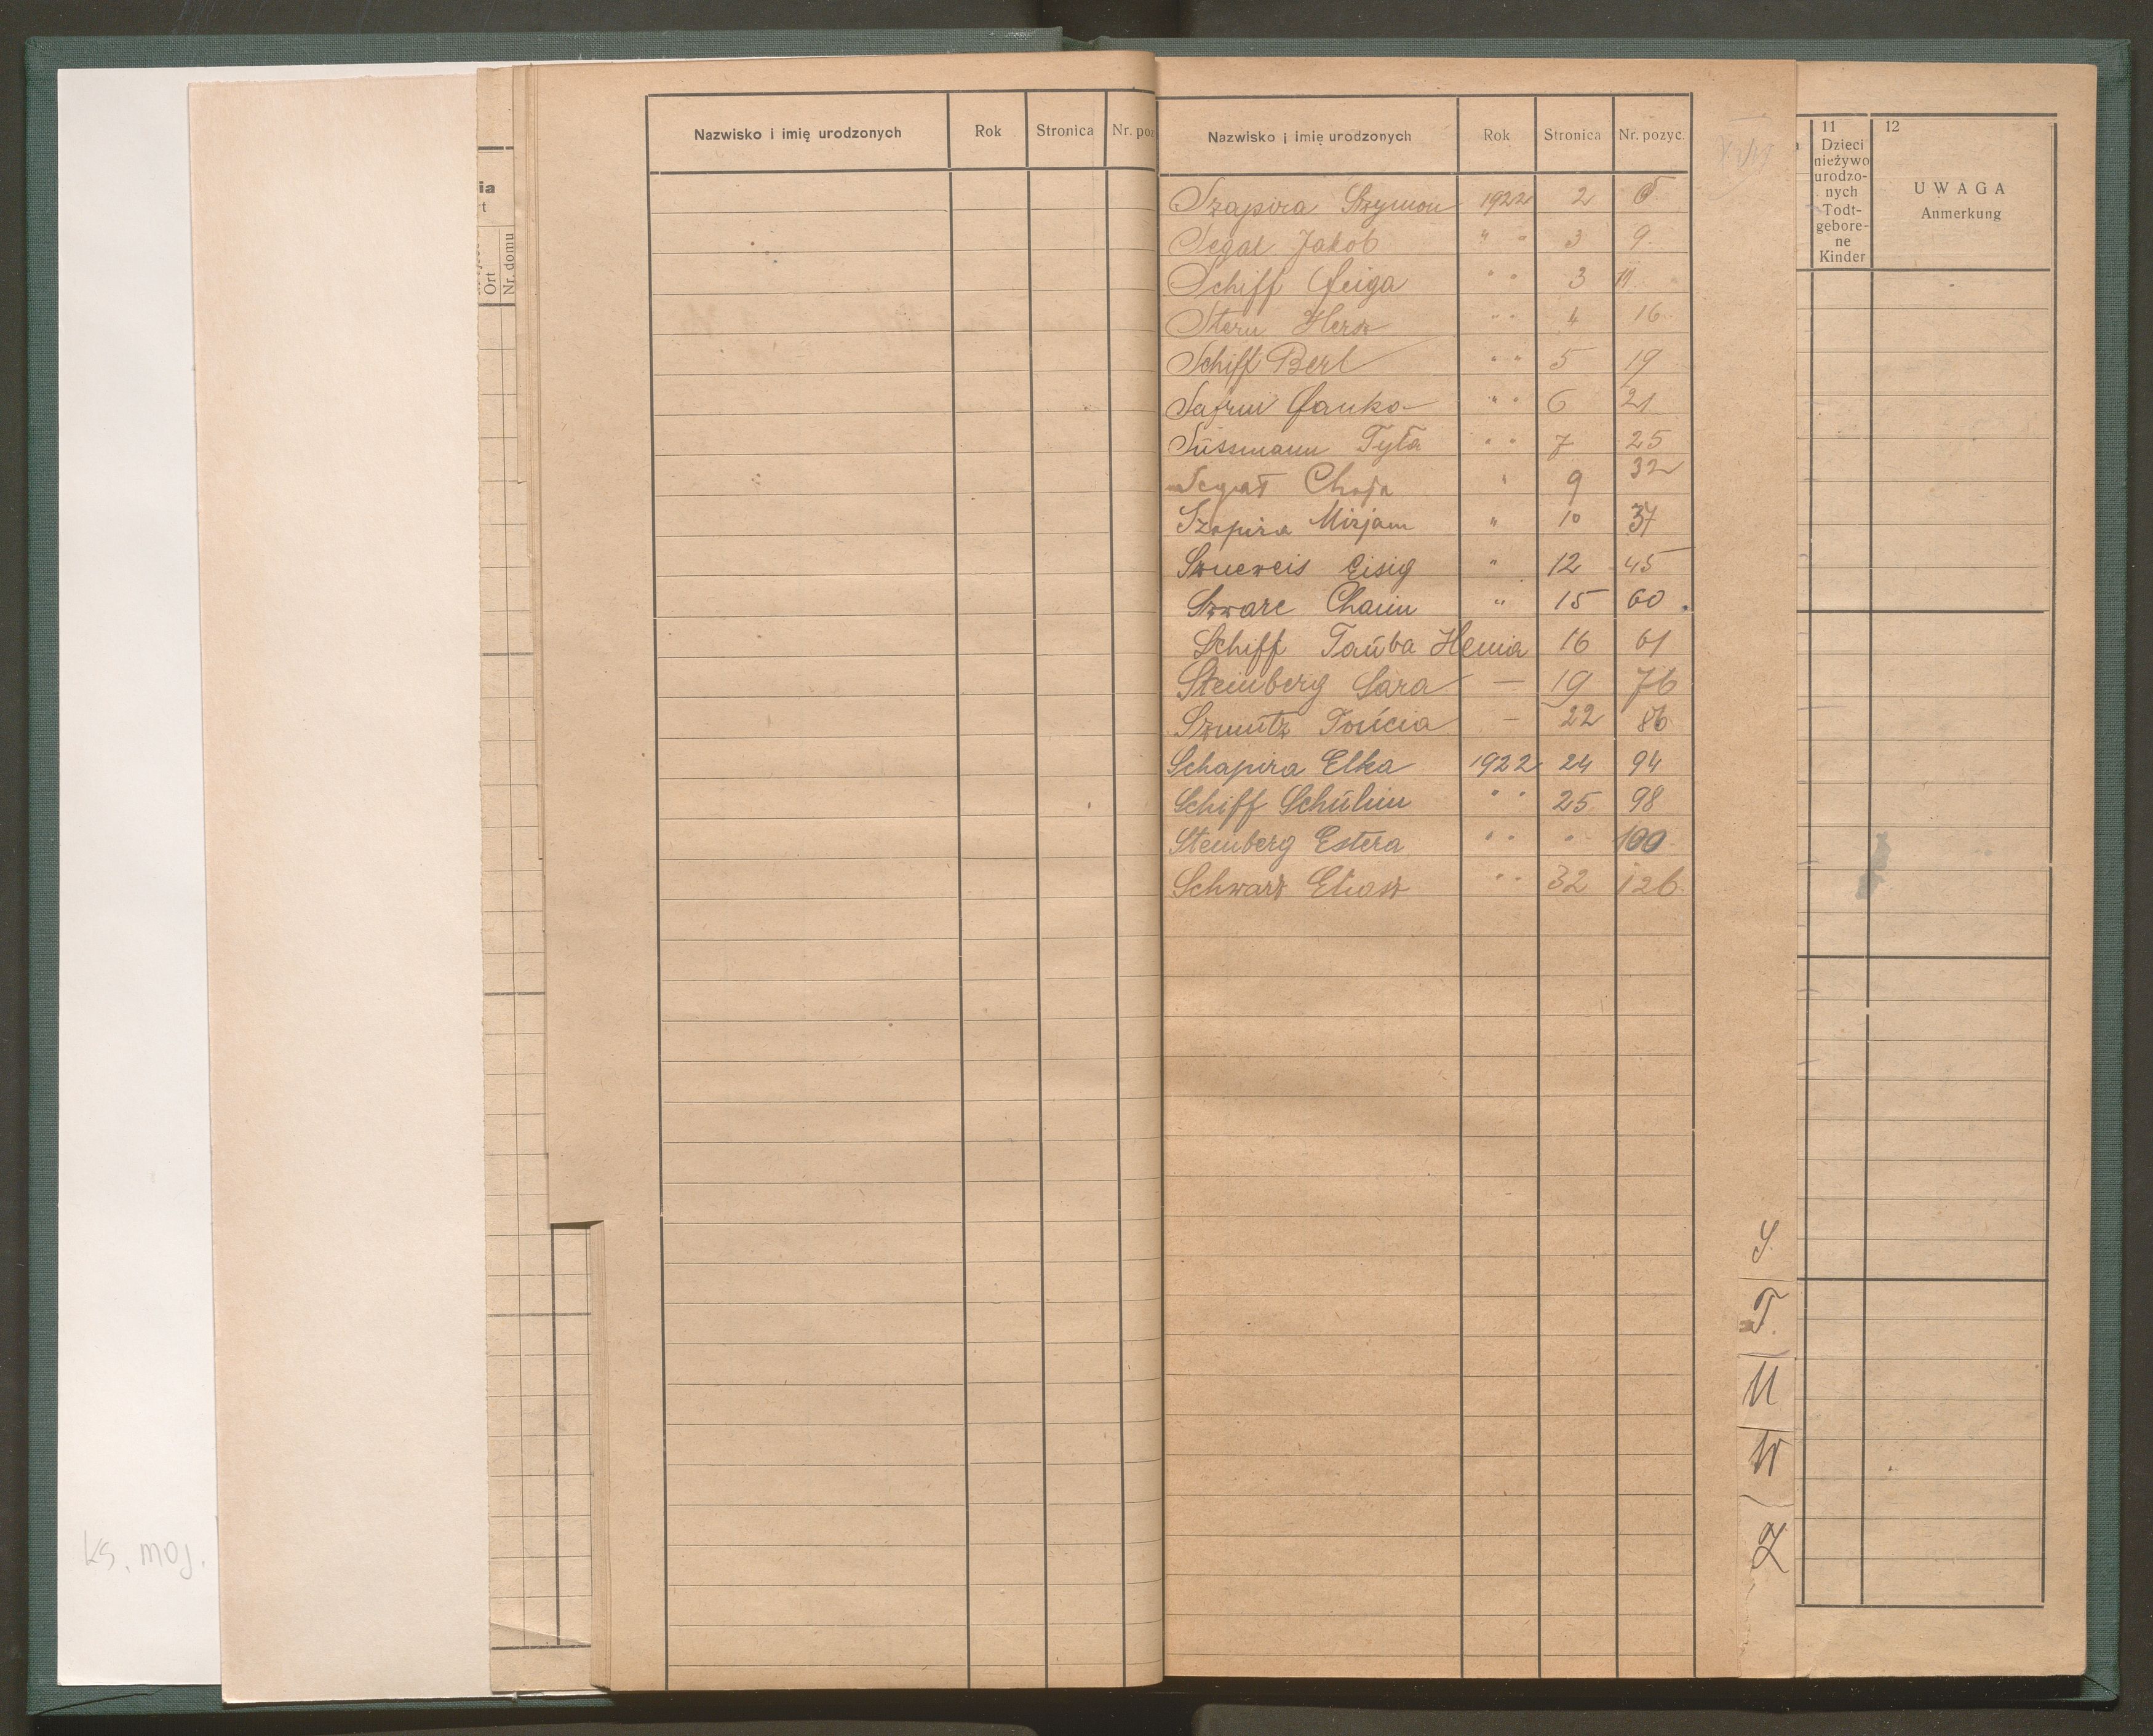 ks. moj.
ia
t
Ort
Nr. domu
Nazwisko i imię urodzonych Rok Stronica Nr. poz
Nazwisko i imię urodzonych Rok Stronica Nr. pozyc.
Szapira Szymon 1922 2 6
Segal Jakob " " 3 9
Schiff Feiga " " 3 11
Stern Hersz " " 4 16
Schiff Berl " " 5 19
Safrin " " 6 21
Süssmann Tyla " " 7 25
Segał Chaja " 9 32
Szapira Mirjam " 10 37
Eisig " 12 45
Szwarc Chaim " 15 60
Schiff Tauba Henia 16 61
Steinberg Sara — 19 76
— 22 86
Schapira Elka 1922 24 94
Schiff Schulim " " 25 98
Steinberg Estera " " " 100
Schwarz " " 32 126
S.
T.
U
W
Z
11
Dzieci
nieżywo
urodzo-
nych
Todt-
gebore-
ne
Kinder
12
UWAGA
Anmerkung